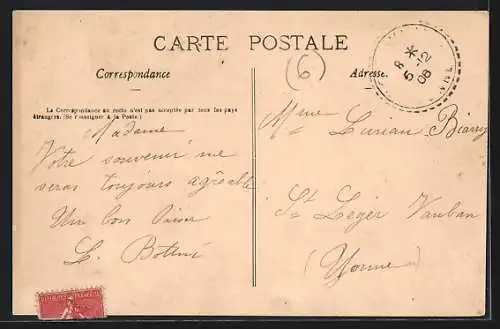 CARTE POSTALE
(6)
Correspondance
Adresse.
8 *
5-12
08
La Correspondance au recto n'est pas acceptée par tous les pays
étrangers. (Se renseigner à la Poste.)
Madame
Votre souvenir me
seras toujours agréable
Un bon baiser
L.
Mme Lucien
St Léger Vauban
(Yonne)